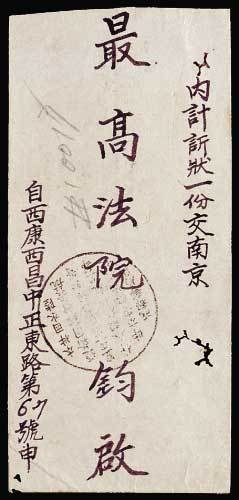 內計訴狀一份交南京
最高法院 鈞啟
自西康西昌中正東路第67號申